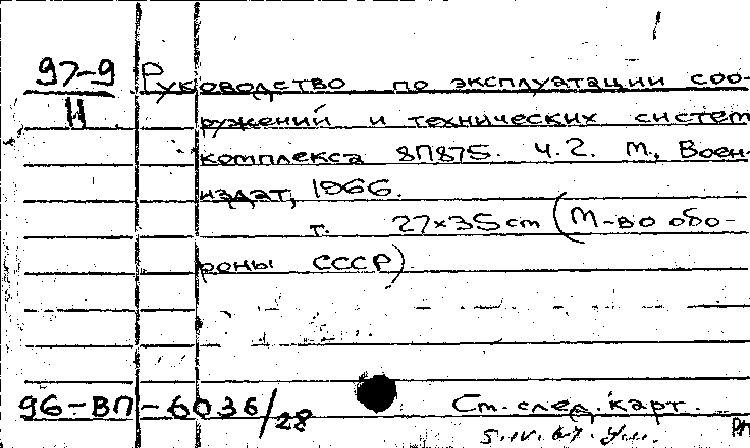 97-9 Руководство по эксплуатации соо-
11 ружений и технических систем
комплекса 8П875. Ч.2. М., Воен-
издат, 1966.
т. 27×35 cm (М-во обо-
роны СССР)
96-ВП-6036/28 Ст. след. карт.